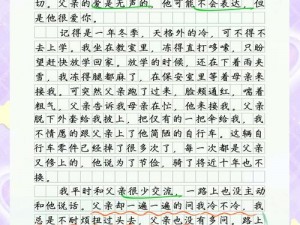 切。父亲的爱是无声的。他可能不会表达，但
是他很爱你。
记得是一年冬季，天格外的冷，可不得不
去上学。我坐在教室里，冻得直打哆嗦，只盼
望赶快放学回家。放学的时候，还在下着雨夹
雪，我冻得腿都麻了，在保安室里等着母亲来
接我。可突然父亲跑了过来，脸颊通红，喘着
粗气。父亲告诉我母亲在忙，他来接我。父亲
脱下外套给我披上，把仅有的一把伞给我。我
不情愿的跟着父亲上了他简陋的自行车。这辆自
行车零件已经掉了很多次了，每一次都是父亲
又修上的，他说为了节俭。骑了将近十年也不
换。
我平时和父亲很少交流，一路上也没主动
和他说话。父亲却一遍一遍的问我冷不冷，我
总是不耐烦扭过头去。父亲也没有多问。路上